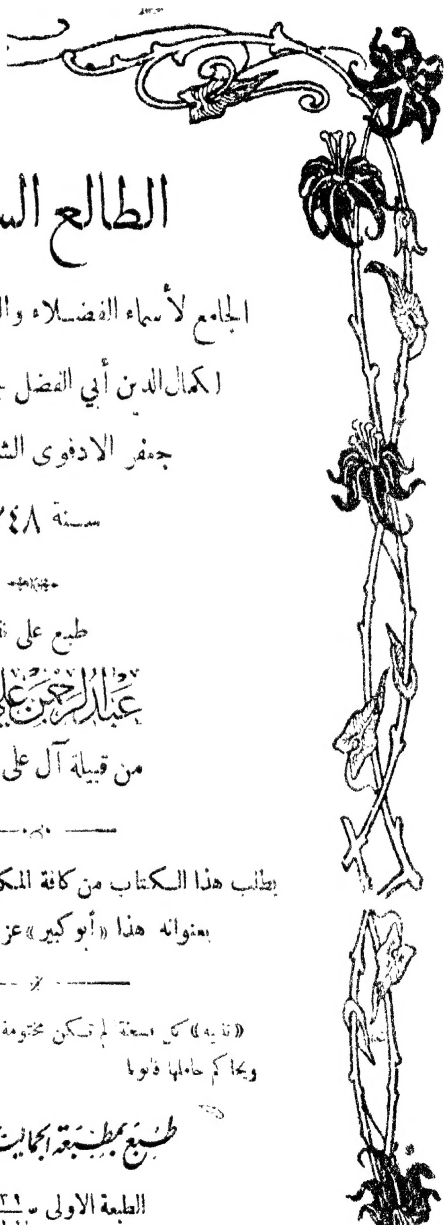 الطالع الس
الجامع لأسماء الفضلاء وال
لكمال الدين أبي الفضل ج
جعفر الادفوى الش
سنة ٧٤٨
طبع على نف
عبد الرحمن علي
من قبيلة آل على
يطلب هذا الكتاب من كافة المك
بعنوانه هذا «أبو كبير» عز
«تنبيه» كل نسخة لم تكن مختومة
ويحاكم حاملها قانونا
طبع بمطبعة الجمالية
الطبعة الاولى س